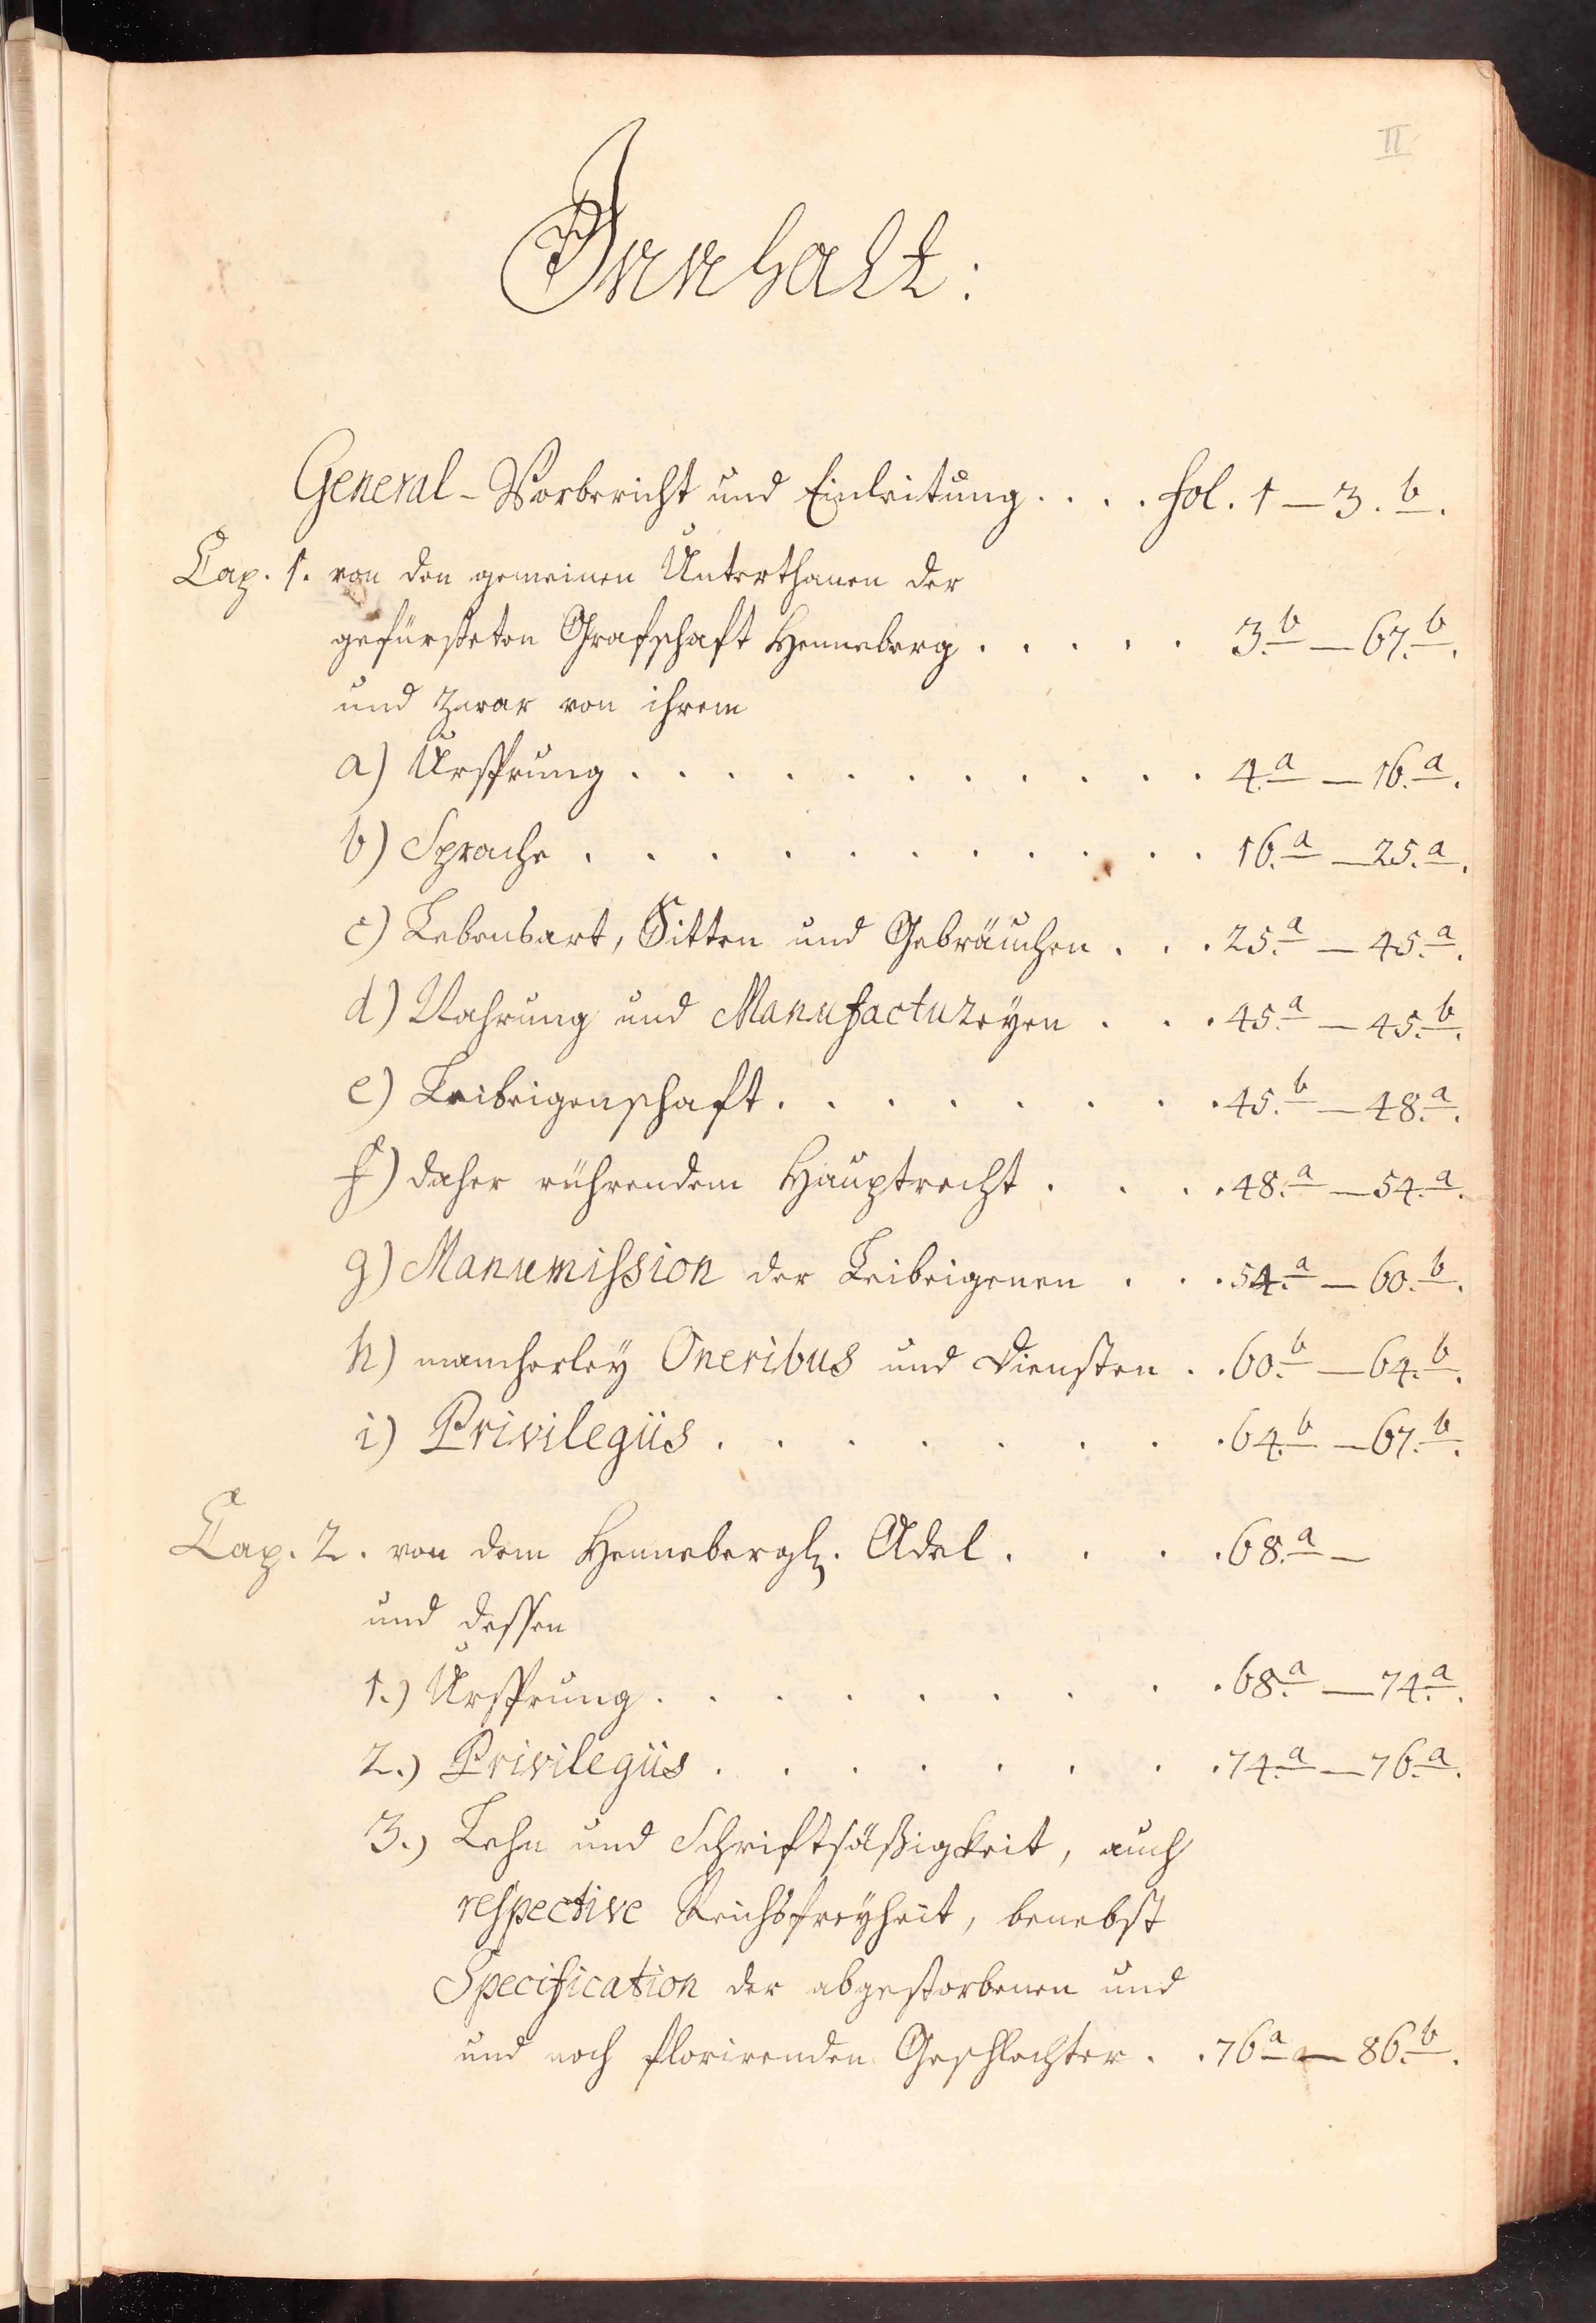 II
Innhalt:
General-Vorbericht und Einleitung. . . . fol. 1 — 3. b.
Cap. 1. von den gemeinen Unterthanen der
gefürsteten Grafschaft Henneberg . . . . . 3.b — 67.b.
und zwar von ihrem
a) Ursprung . . . . . . . . . . 4.a — 16.a.
b) Sprache . . . . . . . . . . 16.a — 25.a.
c) Lebensart, Sitten und Gebräuchen . . . 25.a — 45.a.
d) Nahrung und Manufactureyen . . . 45.a — 45.b.
e) Leibeigenschaft . . . . . . . . 45.b — 48.a.
f) daher rührendem Hauptrecht . . . . 48.a — 54.a.
g) Manumission der Leibeigenen . . . 54.a — 60.b.
h) mancherley Oneribus und Diensten . . 60.b — 64.b.
i) Privilegiis . . . . . . . . 64.b — 67.b.
Cap. 2. von dem Hennebergl. Adel . . . . 68.a —
und dessen
1.) Ursprung . . . . . . . . . 68.a — 74.a.
2.) Privilegiis . . . . . . . . 74.a — 76.a.
3.) Lehn und Schriftsäßigkeit, auch
respective Reichsfreyheit, benebst
Specification der abgestorbenen und
und noch florirenden Geschlechter . . 76a — 86.b.